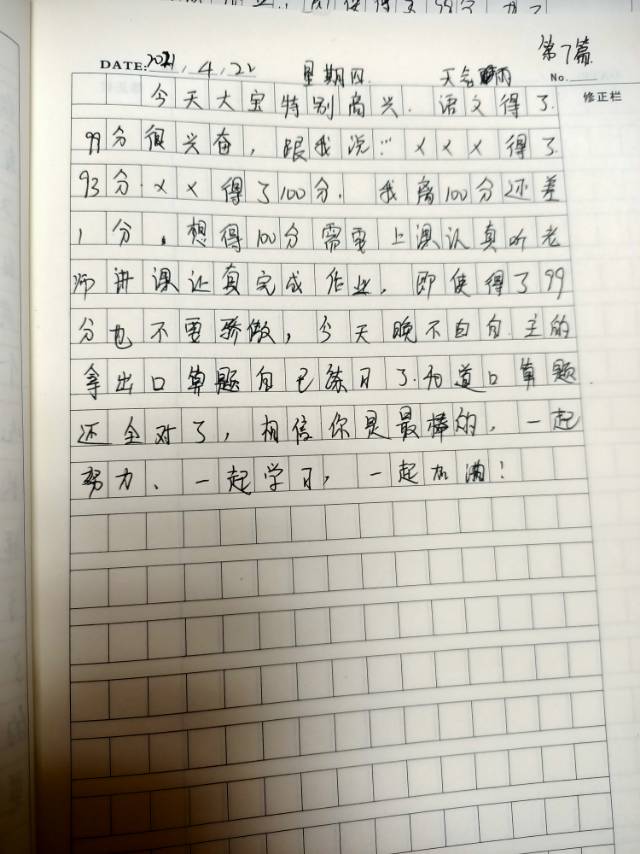 第7篇
DATE: 2021.4.22 星期四 天气晴 No.
修正栏
今天大宝特别高兴.语文得了
99分很兴奋,跟我说:"×××得了
93分.××得了100分.我离100分还差
1分.想得100分需要上课认真听老
师讲课认真完成作业,即使得了99
分也不要骄傲,今天晚不自自主的
拿出口算题自己练习了.道口算题.
还全对了,相信你是最棒的,一起
努力、一起学习,一起加满!